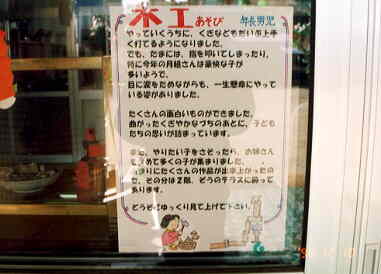 木工あそび 年長男児
やっていくうちに、くぎなどもだいぶ上手
く打てるようになりました。
でも、たまには、指を叩いてしまったり、
特に今年の月組さんは豪快な子が
多いようで、
目に涙をためながらも、一生懸命にやって
いる姿がありました。
たくさんの面白いものができました。
曲がったくぎやかなづちのあとに、子ども
たちの思いが詰まっています。
、やりたい子をさそったら、お姉さん
めて多くの子が集まりました。
まりにたくさんの作品が出来上がったの
で、その分は2階、ぞうのテラスに飾って
あります。
どうぞごゆっくり見て上げて下さい。